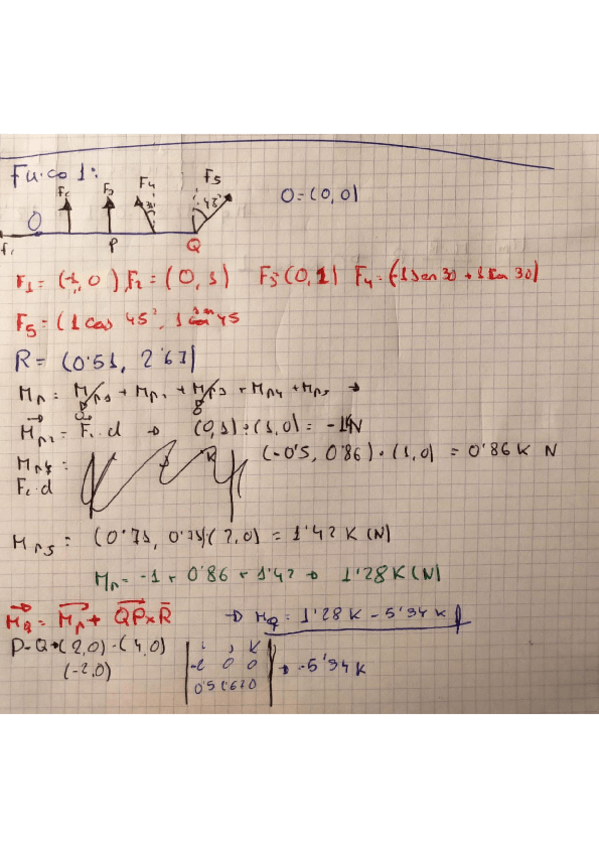 1:
F2 F3 F4 F5
30º 45º
O O=(0,0)
F1 P Q
F1= (-1,0), F2= (0,1) F3=(0,1) F4=(-1sen30+1cos30)
F5= (1cos 45º, 1 sen 45
R= (0'51, 2'67)
Mp= Mp1 + Mp2 + Mp3 + Mp4 + Mp5 →
0 0
Mp2= F2·d → (0,1)·(1,0) = -1kN
Mp4= (-0'5, 0'86)·(1,0) = 0'86K N
F·d
Mp5= (0'71, 0'71)·(2,0) = 1'42K (N)
Mp= -1 + 0'86 + 1'42 → 1'28K(N)
MQ= Mp + QP×R → MQ= 1'28K - 5'34K
P-Q→(2,0)-(4,0)
(-2,0)
i j K
-2 0 0 → -5'34K